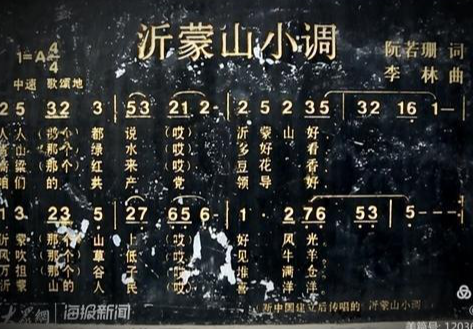 沂蒙山小调
1=A 4/4
阮若珊 词
中速 歌颂地
李林 曲
2 5 32 3 | 53 21 2 - | 2 5 2 35 | 32 16 1 - |
人人(那个)都说(哎)沂蒙山好
山(那个)绿水(哎)乡好看
高粱(那个)红来(哎)豆花香
咱们的共产党(哎)领导好
1 3 23 5 | 27 65 6 - | 1 · 2 76 53 | 5 - - - ||
沂蒙(那个)山上(哎)好风光
风吹(那个)草低(哎)见牛羊
万担(那个)谷子(哎)堆满仓
沂蒙山的人民(哎)喜洋洋
新中国建立后传唱的《沂蒙山小调》
大众网 海报新闻